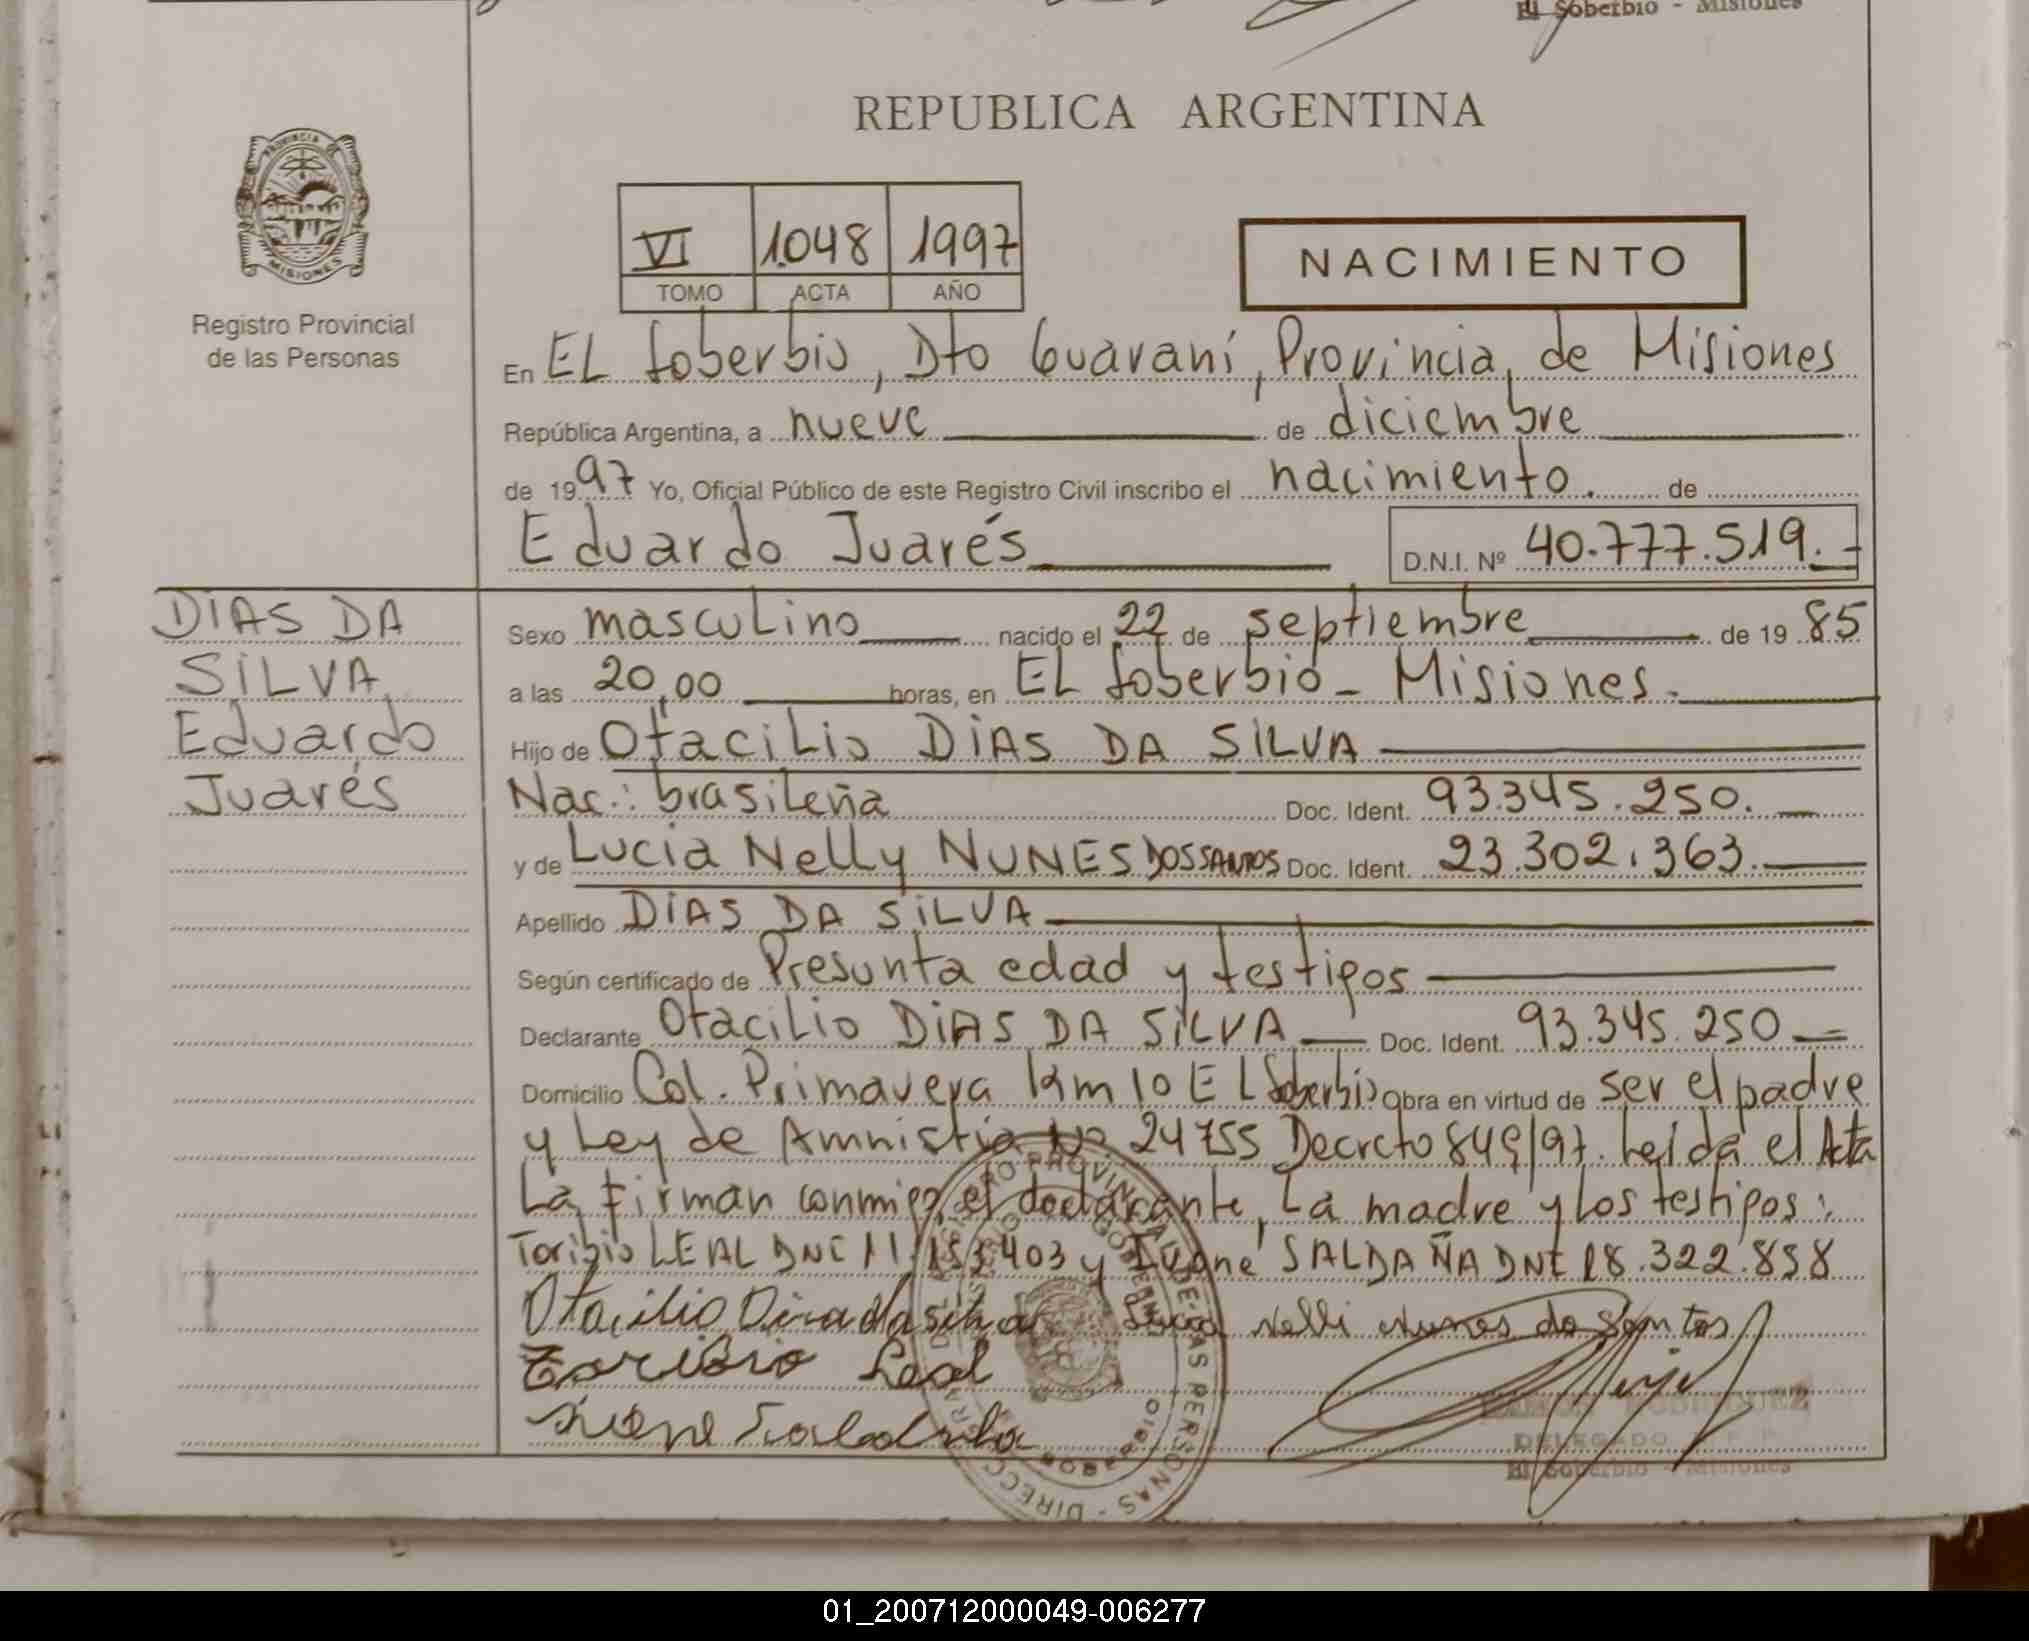 El Soberbio - Misiones
REPUBLICA ARGENTINA
PROVINCIA DE
MISIONES
Registro Provincial
de las Personas
VI 1.048 1997
TOMO ACTA AÑO
NACIMIENTO
En EL Soberbio, Dto Guaraní, Provincia, de Misiones
República Argentina, a nueve de diciembre
de 1997 Yo, Oficial Público de este Registro Civil inscribo el nacimiento. de
Eduardo Juarés D.N.I. Nº 40.777.519.-
DIAS DA
SILVA
Eduardo
Juarés
Sexo masculino nacido el 22 de septiembre de 19 85
a las 20,00 horas, en EL Soberbio - Misiones.
Hijo de Otacilio DIAS DA SILVA
Nac.: brasileña Doc. Ident. 93.345.250.
y de Lucia Nelly NUNES DOS SANTOS Doc. Ident. 23.302.363.
Apellido DIAS DA SILVA
Según certificado de Presunta edad y testigos
Declarante Otacilio DIAS DA SILVA Doc. Ident. 93.345.250
Domicilio Col. Primavera Km 10 EL Soberbio Obra en virtud de ser el padre
y Ley de Amnistia Nº 24755 Decreto 849/97. Leída el Acta
La firman conmigo el declarante, La madre y Los testigos:
Toribio LEAL DNI 11. 403 y SALDAÑA DNI 18.322.858
Otacilio Dia da silva Lucia Nelli Nunes do Santos
Toribio Leal
RAMON RODRIGUEZ
DELEGADO
El Soberbio - Misiones
01_200712000049-006277